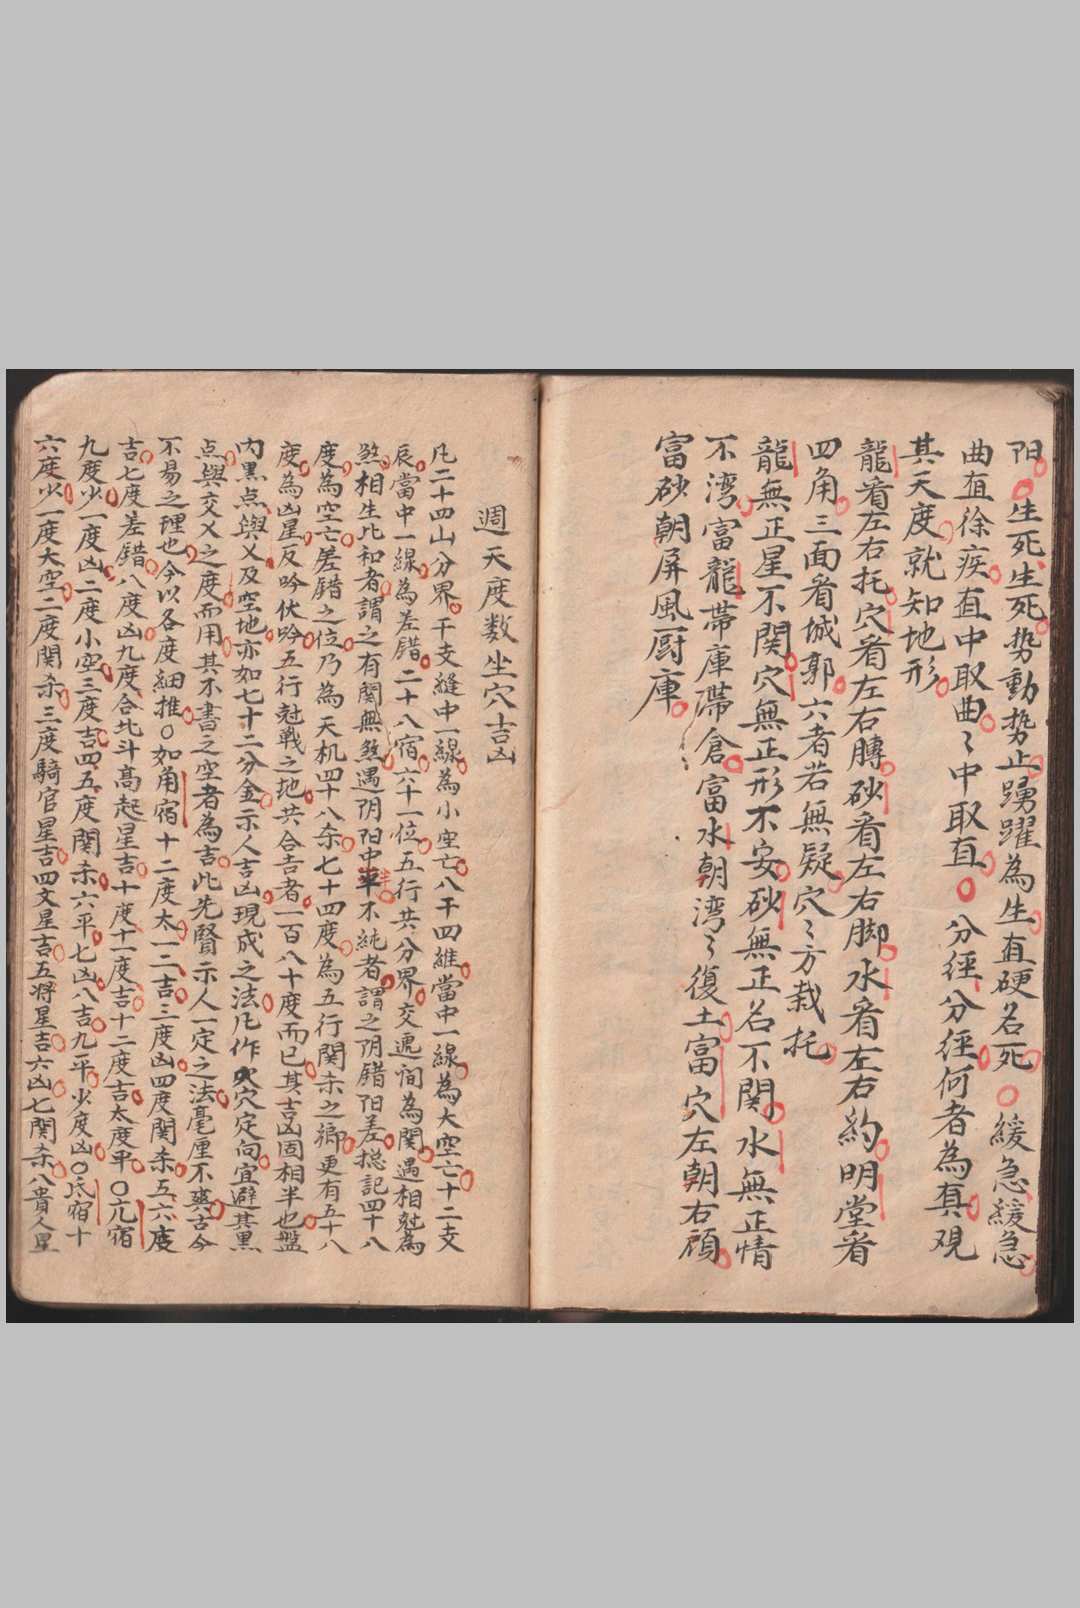 阳生死生死势動势止踴躍為生直硬名死緩急緩急
曲直徐疾直中取曲〻中取直分經分經何者為真观
其天度就知地形
龍看左右托穴看左右膊砂看左右脚水看左右約明堂看
四角三面看城郭六者若無疑穴〻方栽托
龍無正星不関穴無正形不安砂無正名不関水無正情
不湾富龍帶庫帶倉富水朝湾〻復土富穴左朝右顧
富砂朝屏風厨庫
週天度数坐穴吉凶
凡二十四山分界干支縫中一線為小空亡八干四維當中一線為大空亡十二支
辰當中一線為差錯二十八宿六十一位五行共分界交遞间為関遇相尅為
煞相生比和者謂之有関無煞遇阴阳中半不純者謂之阴錯阳差摠記四十八
度為空亡差錯之位乃為天机四十八杀七十四度為五行関杀之鄉更有五十八
度為凶星反吟伏吟五行尅戰之地共合吉者一百八十度而已其吉凶固相半也盤
内黑点與乂及空地亦如七十二分金示人吉凶現成之法凡作穴定向宜避其黑
点與交乂之度而用其不書之空者為吉此先賢示人一定之法毫厘不爽古今
不易之理也今以各度細推〇如角宿十二度太一二吉三度凶四度関杀五六度
吉七度差錯八度凶九度合北斗高起星吉十度十一度吉十二度吉太度平〇亢宿
九度少一度凶二度小空三度吉四五度関杀六平七凶八吉九平少度凶〇氐宿十
六度少一度大空二度関杀三度騎官星吉四文星吉五将星吉六凶七関杀八貴人星